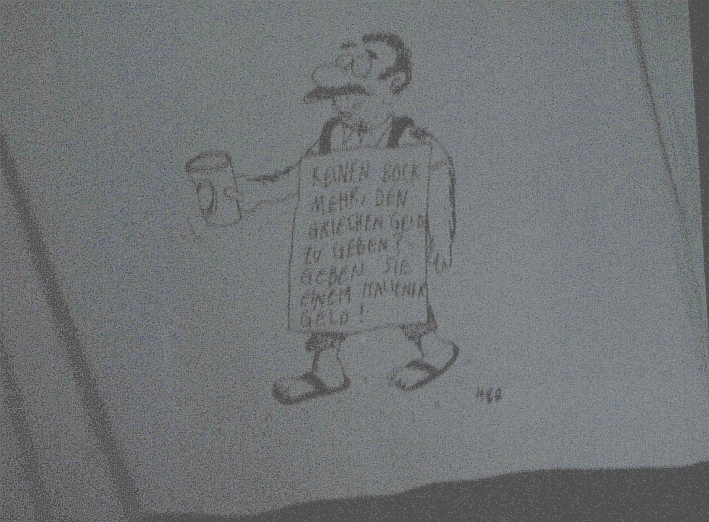 KEINEN BOCK
MEHR, DEN
GRIECHEN GELD
ZU GEBEN?
GEBEN SIE
EINEM ITALIENER
GELD!